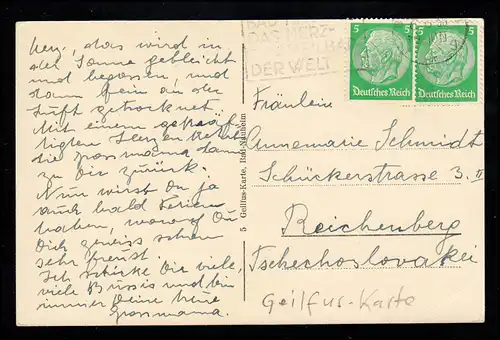 BAD
DAS HERZ-
HEILBAD
DER WELT
5
5
Deutsches Reich
Deutsches Reich
Herz, das wird in
der Sonne gebleicht
und begossen, und
dann fein an der
Luft getrocknet.
Mit einem gekräf-
tigten Herzen kehrt
die Grossmama dann
zu Dir zurück.
Nun wirst Du ja
auch bald Ferien
haben, worauf Du
Dich gewiss schon
sehr freust.
Ich schicke Dir viele,
viele Bussis und bin
immer Deine
Grossmama.
5 Geilfus-Karte, Bad-Nauheim
Fräulein
Annemarie Schmidt
Schückerstrasse 3. II
Reichenberg
Tschechoslovakei
Geilfus-Karte